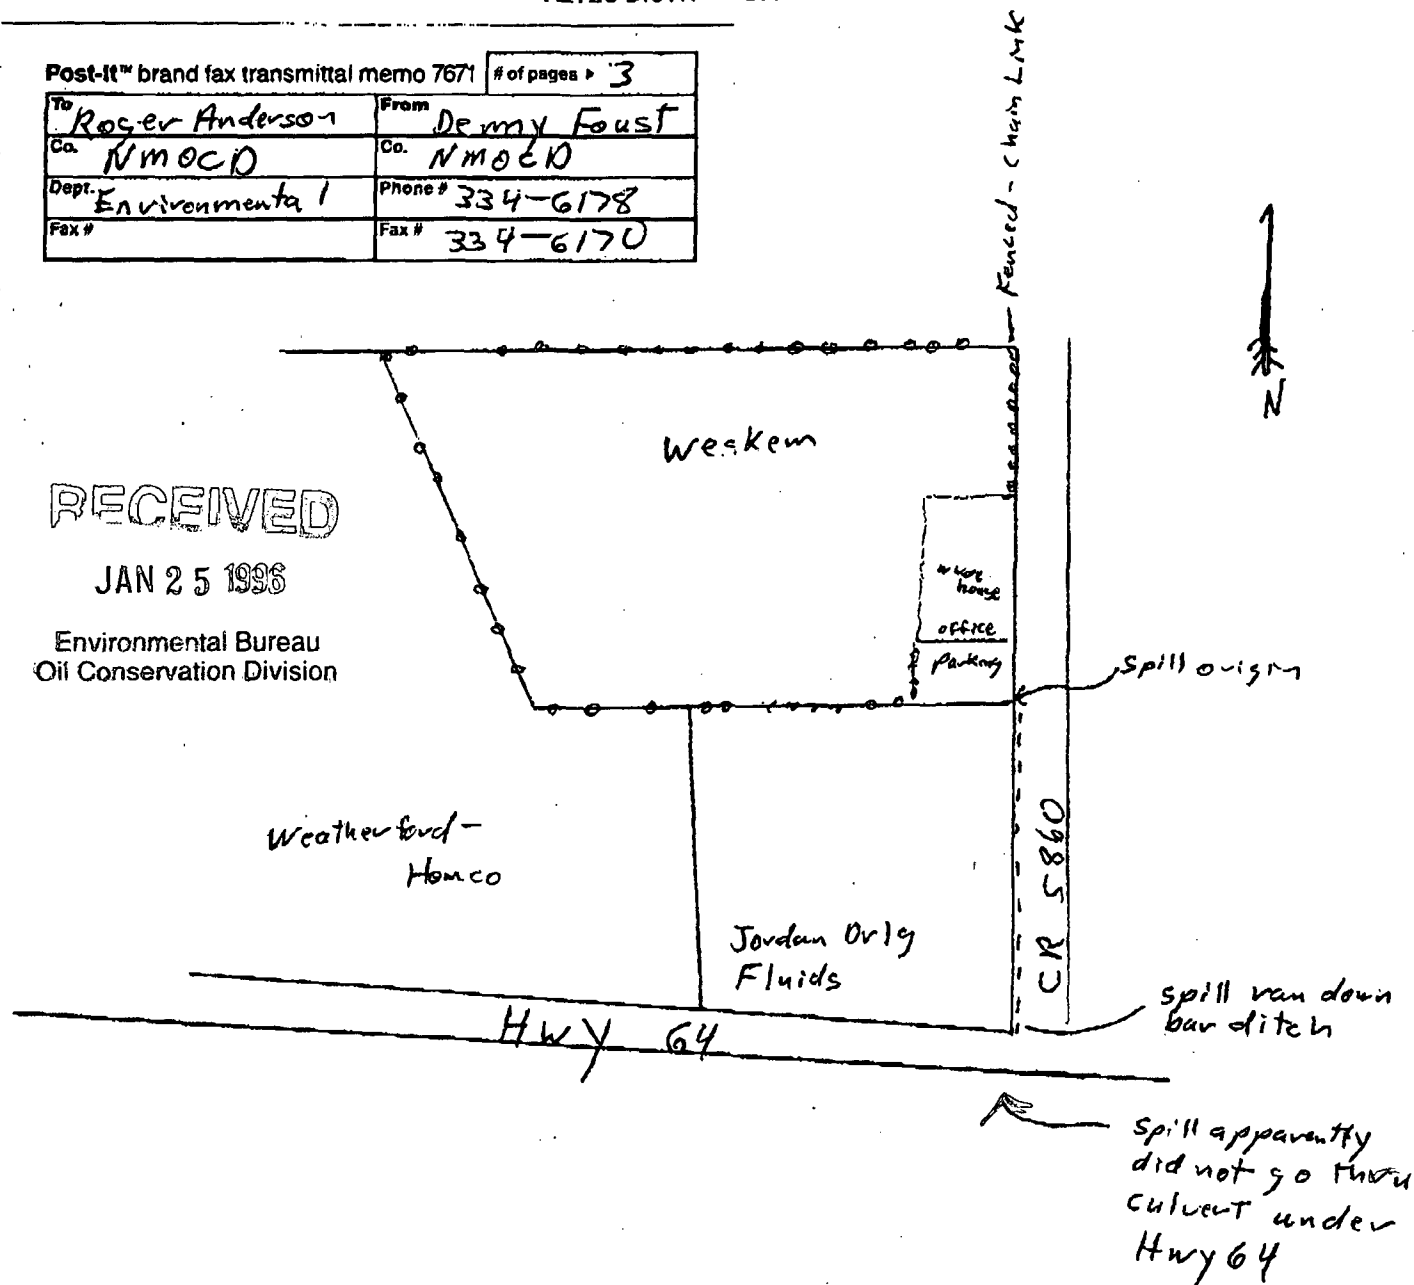 Post-It™ brand fax transmittal memo 7671
# of pages ▸ 3
To Roger Anderson
From Denny Foust
Co. NMOCD
Co. NMOCD
Dept. Environmental
Phone # 334-6178
Fax #
Fax # 334-6170
Fenced - Chain Link
N
Weskem
RECEIVED
JAN 25 1996
Environmental Bureau
Oil Conservation Division
ware
house
office
parking
spill origin
Weatherford -
Homco
Jordan Drlg
Fluids
CR 5860
Hwy 64
spill ran down
bar ditch
spill apparently
did not go thru
culvert under
Hwy 64